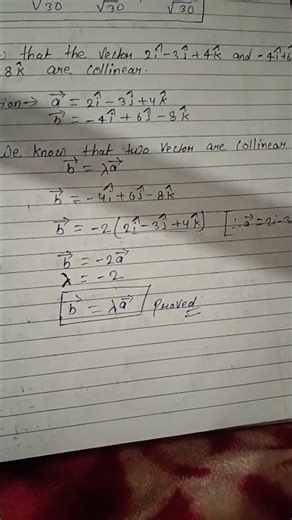 √30 √30 √30
that the vector 2î-3ĵ+4k̂ and -4î+6
8k̂ are collinear.
ion→ a⃗ = 2î-3ĵ+4k̂
b⃗ = -4î+6ĵ-8k̂
We know that two vector are collinear
b⃗ = λa⃗
b⃗ = -4î+6ĵ-8k̂
b⃗ = -2(2î-3ĵ+4k̂) [∴a⃗=2i-3
b⃗ = -2a⃗
λ = -2
b⃗ = λa⃗ Proved